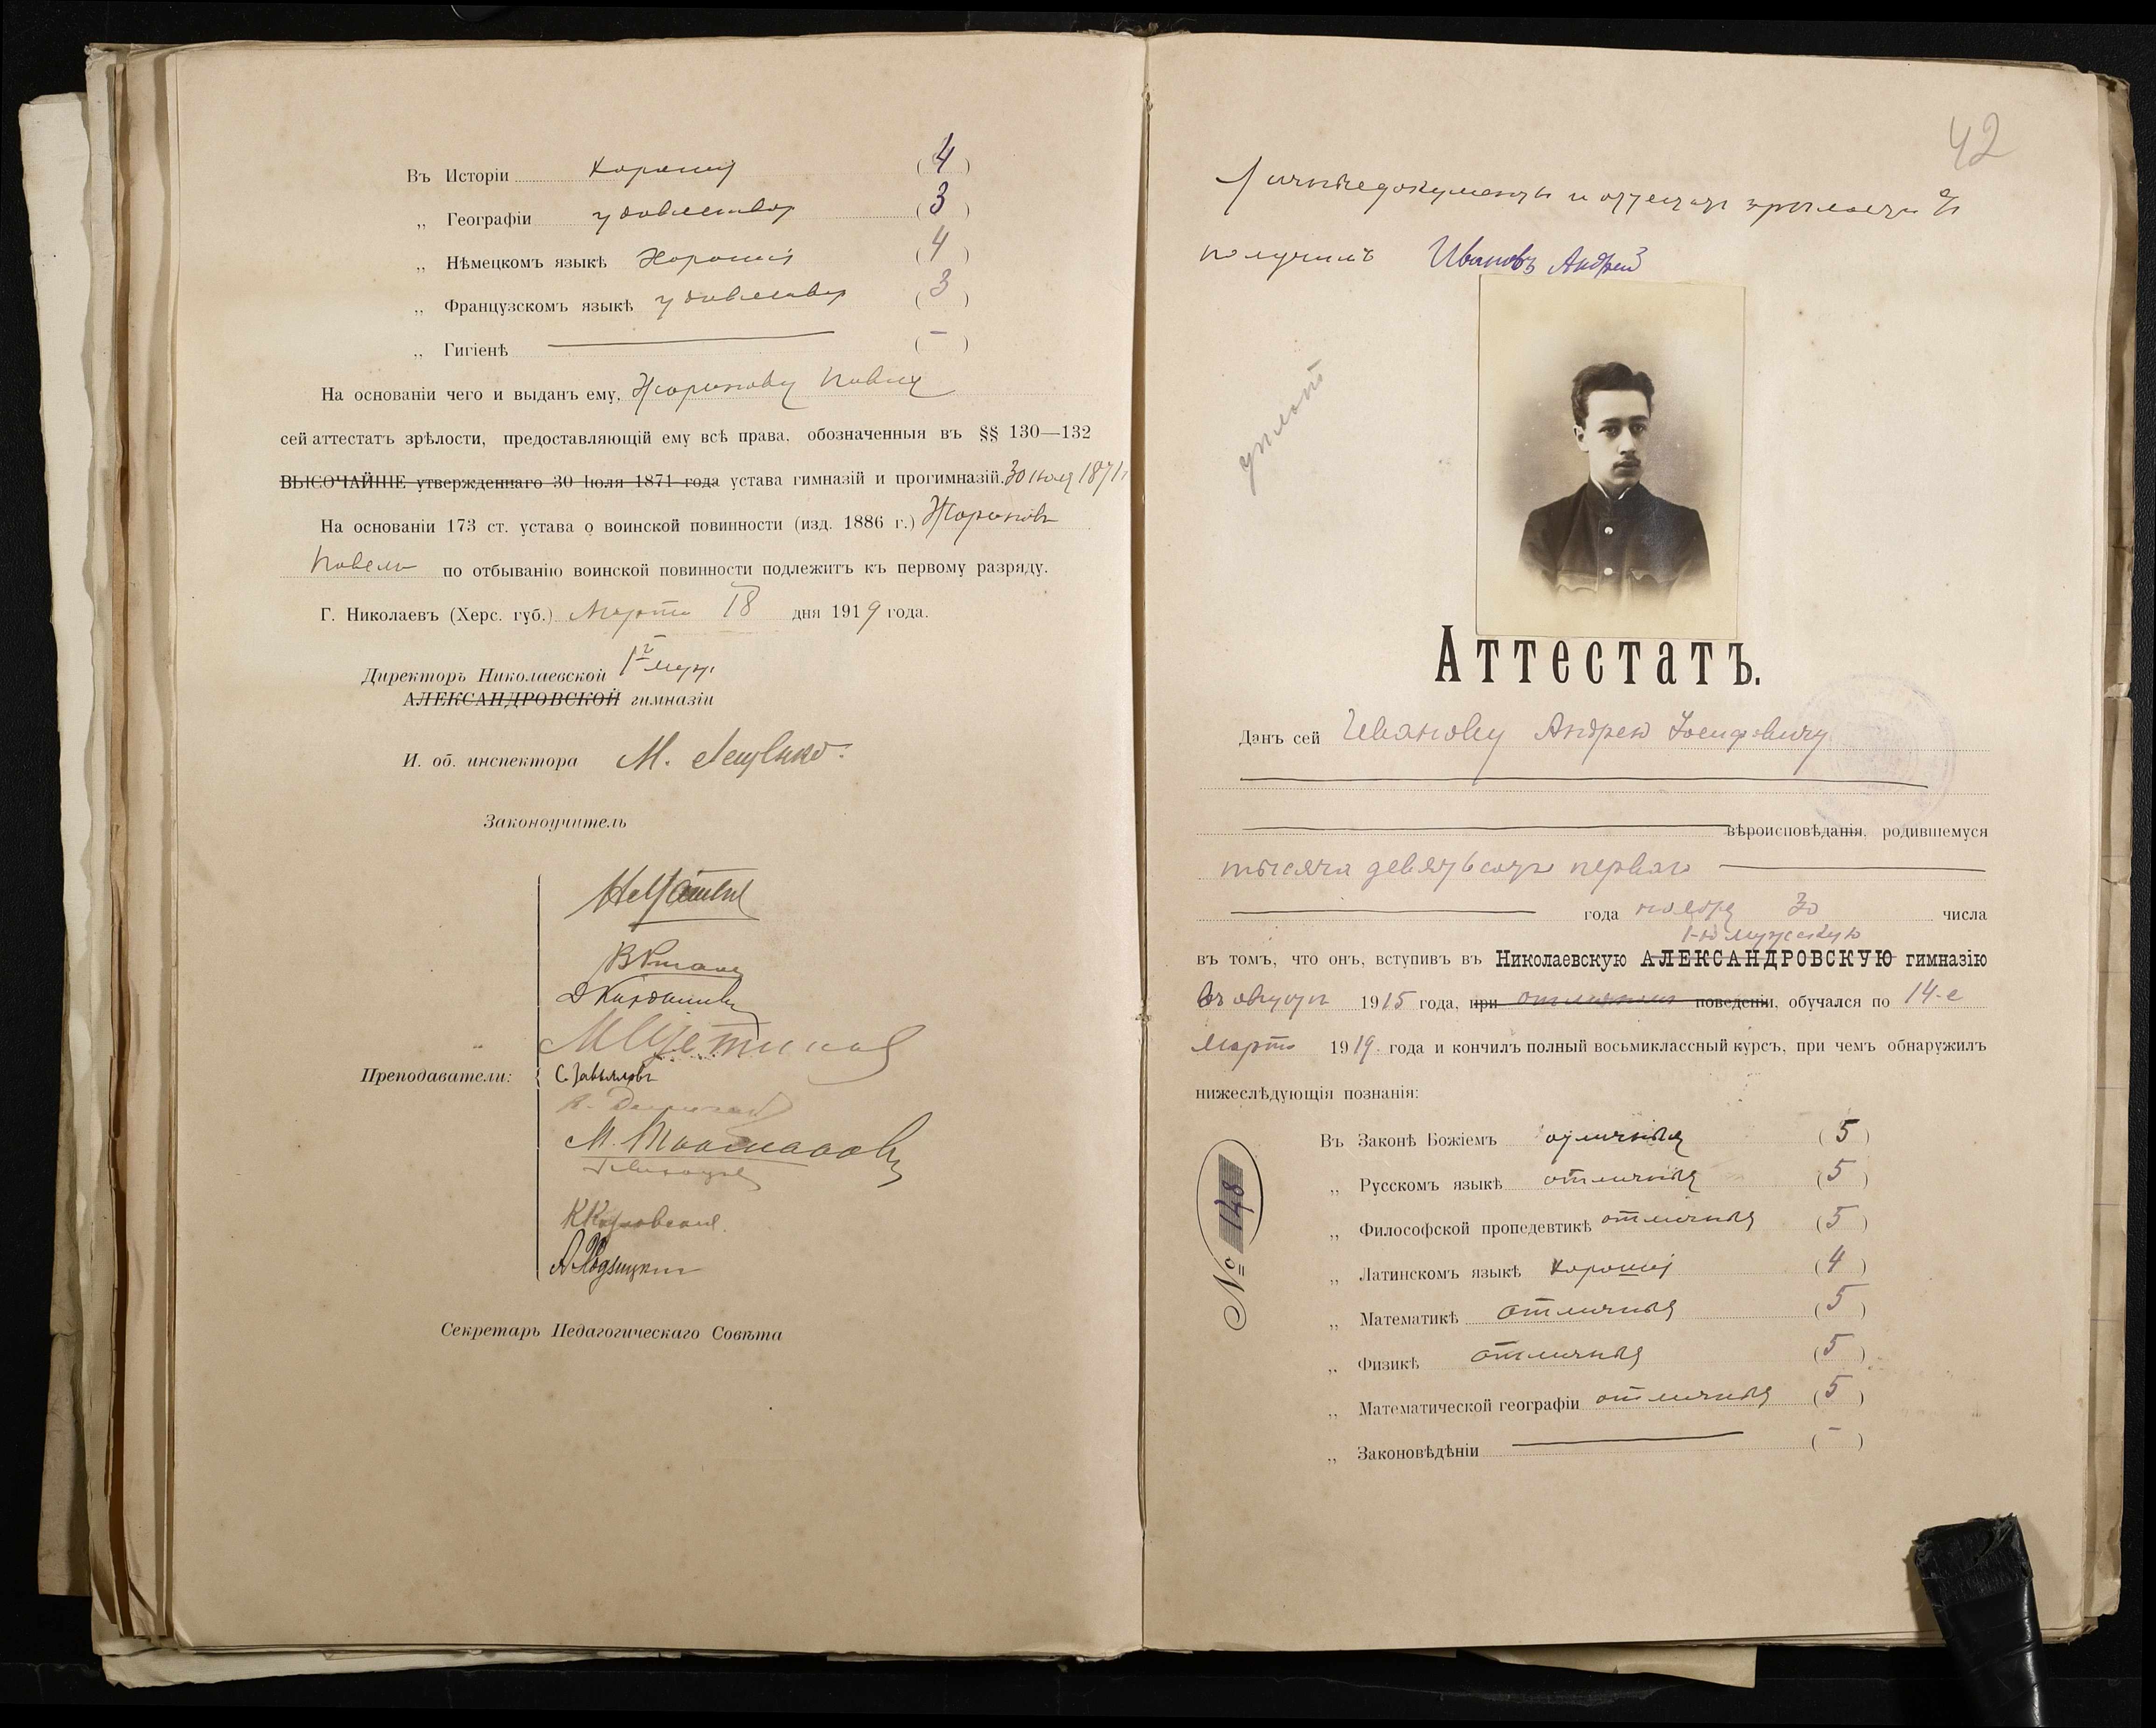 Въ Исторіи хорошія (4)
„ Географіи удовлетвор (3)
„ Нѣмецкомъ языкѣ Хорошія (4)
„ Французскомъ языкѣ удовлетвор (3)
„ Гигіенѣ — (-)
На основаніи чего и выданъ ему,
сей аттестатъ зрѣлости, предоставляющій ему всѣ права, обозначенныя въ §§ 130—132
ВЫСОЧАЙШЕ утвержденнаго 30 Іюля 1871 года устава гимназій и прогимназій. 30 іюля 1871 г
На основаніи 173 ст. устава о воинской повинности (изд. 1886 г.)
Павелъ по отбыванію воинской повинности подлежитъ къ первому разряду.
Г. Николаевъ (Херс. губ.) Марта 18 дня 1919 года.
Директоръ Николаевской 1-й муж.
АЛЕКСАНДРОВСКОЙ гимназіи
И. об. инспектора М. Лещенко
Законоучитель
Преподаватели:
С. Завьяловъ
Секретарь Педагогическаго Совѣта
42
Личные документы и аттестат зрѣлости
получилъ Ивановъ Андрей
Аттестатъ.
Данъ сей Иванову Андрею Іосифовичу
вѣроисповѣданія, родившемуся
тысяча девятьсотъ перваго
года ноября 30 числа
1-ю мужскую
въ томъ, что онъ, вступивъ въ Николаевскую АЛЕКСАНДРОВСКУЮ гимназію
въ августѣ 1915 года, при отличномъ поведеніи, обучался по 14-е
марта 1919 года и кончилъ полный восьмиклассный курсъ, при чемъ обнаружилъ
нижеслѣдующія познанія:
№ 148
Въ Законѣ Божіемъ отличныя (5)
„ Русскомъ языкѣ отличныя (5)
„ Философской пропедевтикѣ отличныя (5)
„ Латинскомъ языкѣ хорошія (4)
„ Математикѣ отличныя (5)
„ Физикѣ отличныя (5)
„ Математической географіи отличныя (5)
„ Законовѣдѣніи — (-)